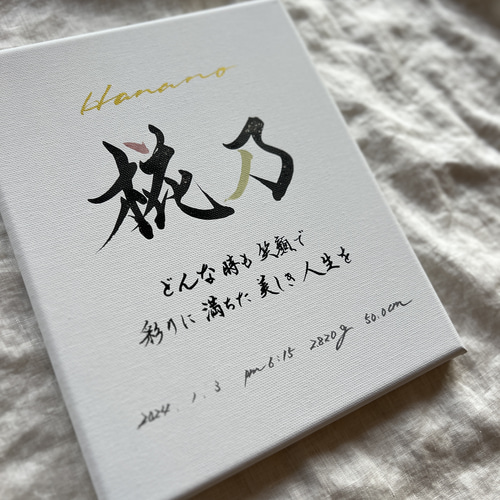 Hanano
椛乃
どんな時も笑顔で
彩りに満ちた美しき人生を
2024.1.3 pm6:15 2820g 50.0cm